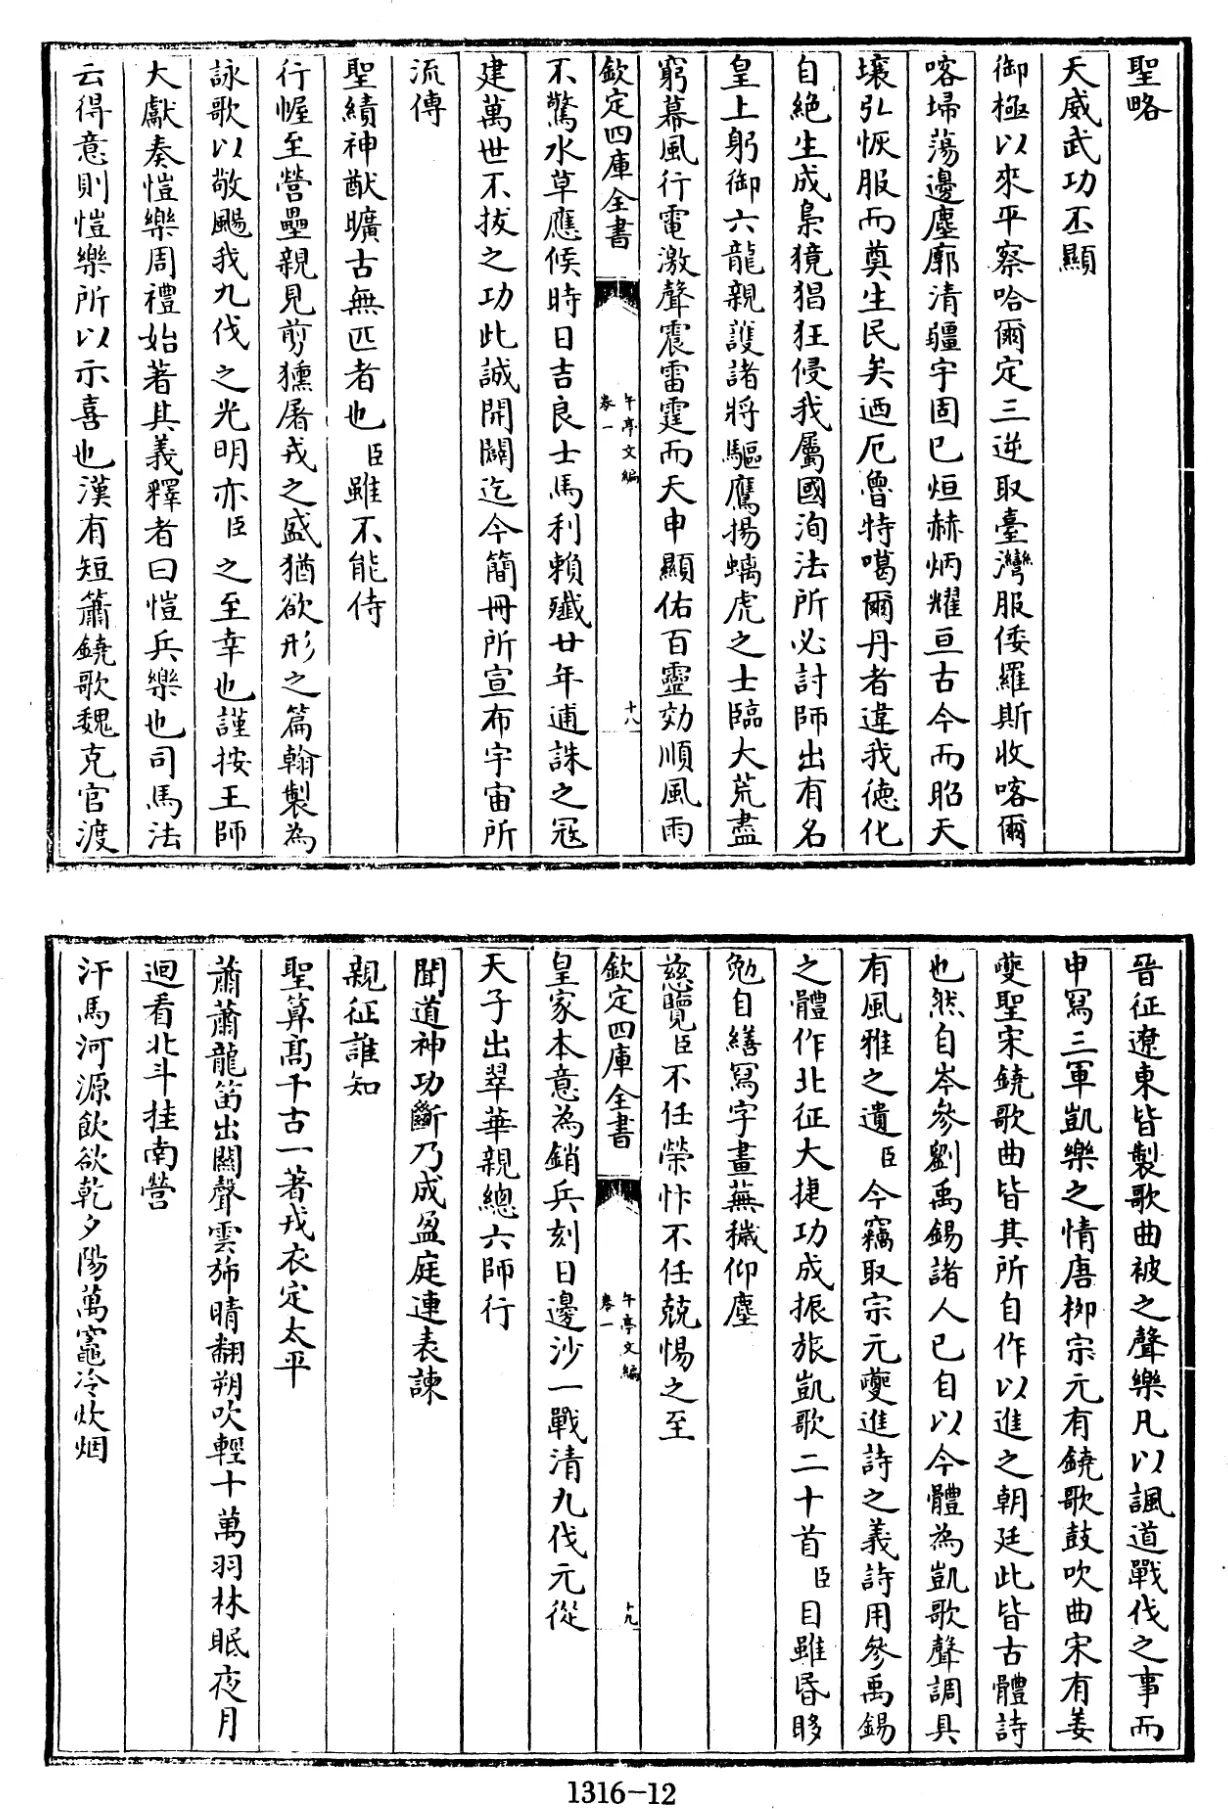 聖略
天威武功丕顯
御極以來平察哈爾定三逆取臺灣服倭羅斯收喀爾
喀埽蕩邊塵廓清疆宇固已烜赫炳耀亘古今而昭天
壤弘恢服而奠生民矣迺厄魯特噶爾丹者違我德化
自絶生成梟獍猖狂侵我屬國洵法所必討師出有名
皇上躬御六龍親護諸將驅鷹揚螭虎之士臨大荒盡
窮幕風行電激聲震雷霆而天申顯佑百靈効順風雨
欽定四庫全書
午亭文編
卷一
十八
不驚水草應候時日吉良士馬利賴殲廿年逋誅之寇
建萬世不拔之功此誠開闢迄今簡冊所宣布宇宙所
流傳
聖績神猷曠古無匹者也臣雖不能侍
行幄至營壘親見剪獯屠戎之盛猶欲形之篇翰製為
詠歌以敬颺我九伐之光明亦臣之至幸也謹按王師
大獻奏愷樂周禮始著其義釋者曰愷兵樂也司馬法
云得意則愷樂所以示喜也漢有短簫鐃歌魏克官渡
晉征遼東皆製歌曲被之聲樂凡以諷道戰伐之事而
申寫三軍凱樂之情唐栁宗元有鐃歌鼓吹曲宋有姜
夔聖宋鐃歌曲皆其所自作以進之朝廷此皆古體詩
也然自岑參劉禹錫諸人已自以今體為凱歌聲調具
有風雅之遺臣今竊取宗元夔進詩之義詩用參禹錫
之體作北征大捷功成振旅凱歌二十首臣目雖昏眵
勉自繕寫字畫蕪穢仰塵
慈覽臣不任榮忭不任兢惕之至
欽定四庫全書
午亭文編
卷一
十九
皇家本意為銷兵刻日邊沙一戰清九伐元從
天子出翠華親總六師行
聞道神功斷乃成盈庭連表諫
親征誰知
聖算髙千古一著戎衣定太平
蕭蕭龍笛出關聲雲斾晴翻朔吹輕十萬羽林眠夜月
迴看北斗挂南營
汗馬河源飲欲乾夕陽萬竈冷炊烟
1316-12